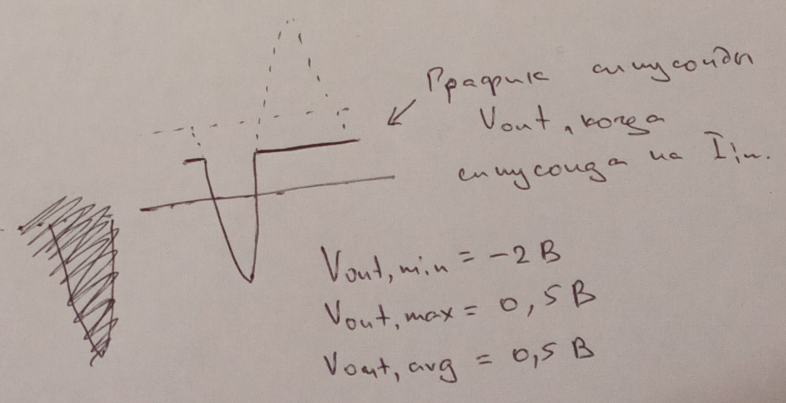 График синусоиды
Vout, когда
синусоида на Iin.
Vout, min = -2 В
Vout, max = 0,5 В
Vout, avg = 0,5 В